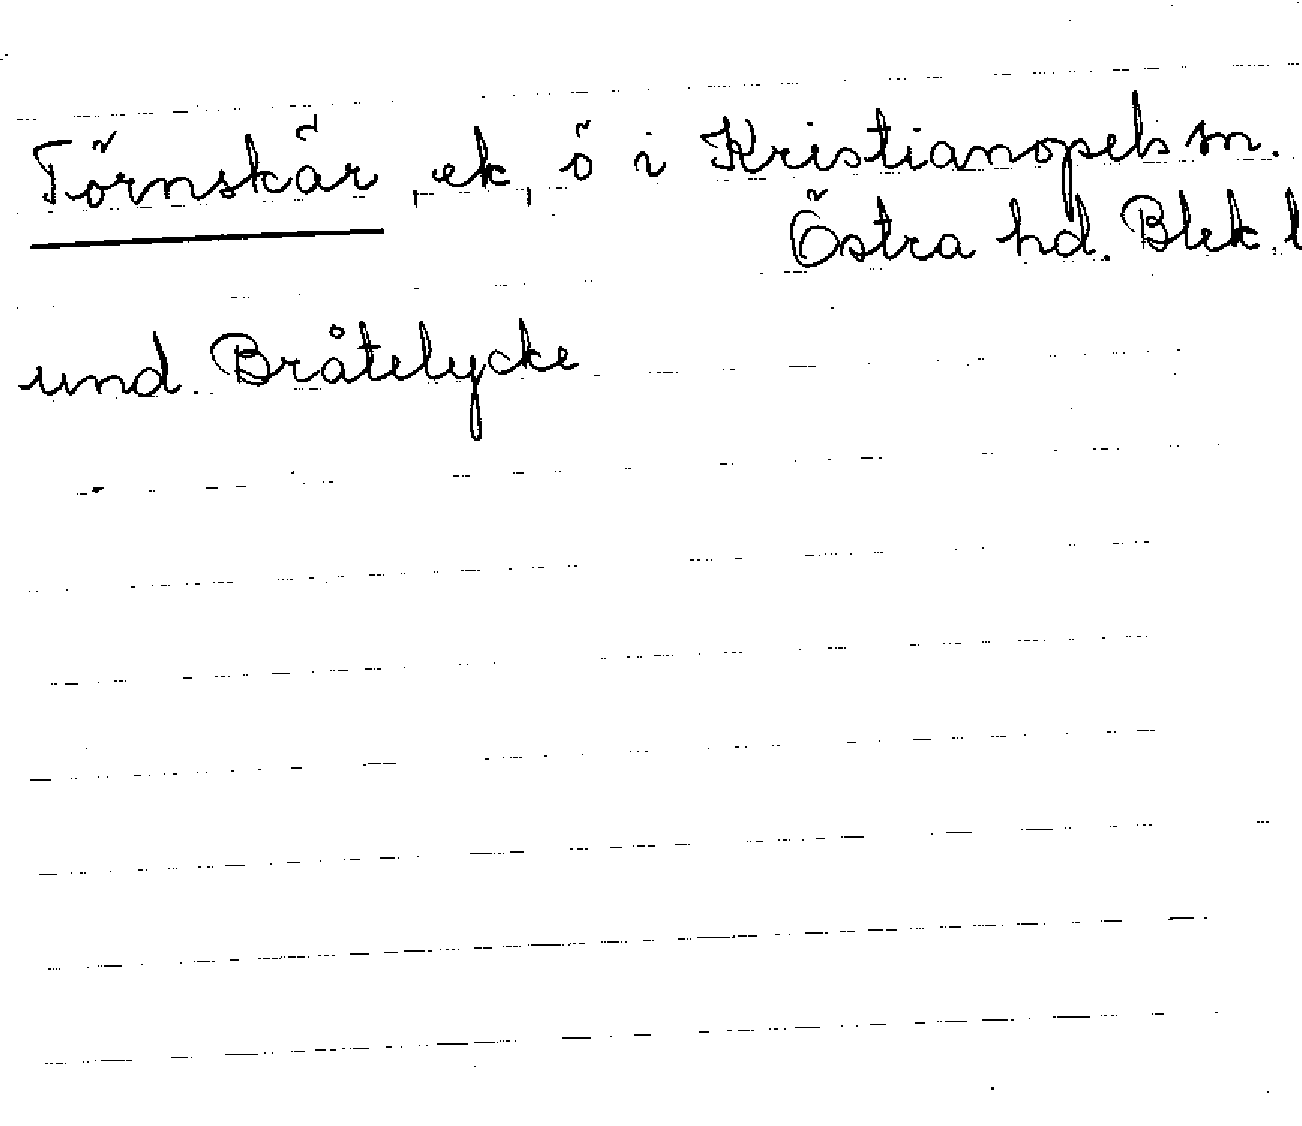 Törnskär, ek, ö i Kristianopels sn.
Östra hd. Blek. l
und. Bråtelycke